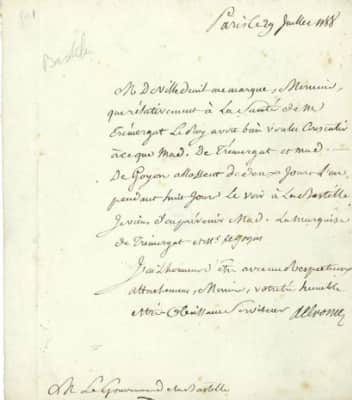 Paris le 29 Juillet 1788
Bastille
M. De Villedeuil me marque, Monsieur,
que relativement à La Santé de M.
Trémergat Le Roy a voulu bien Consentir
à ce que Mad. De Trémergat et mad.
De Goyon allassent de deux Jours l'un
pendant huit Jour le voir à La Bastille
Je viens d'en prévenir Mad. La marquise
de Trémergat et M. de Goyon
J'ai L'honneur d'Etre avec un Respectueux
attachement, Monsieur, votre très humble
et très Obéissant Serviteur
M. Le Gouverneur de la Bastille